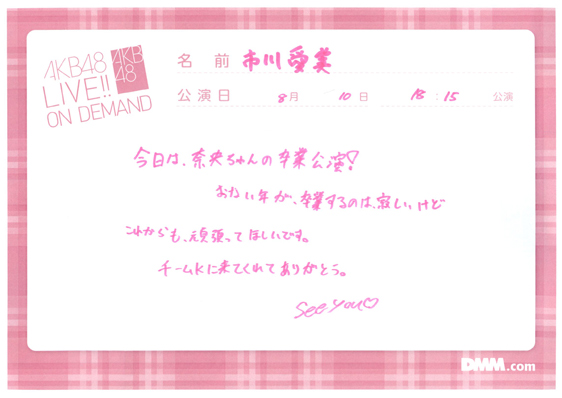 AKB48
LIVE!!
ON DEMAND
AKB
48
名前 市川愛美
公演日 8月 10日 18:15 公演
今日は、奈央ちゃんの卒業公演!
おない年が、卒業するのは、寂しいけど
これからも、頑張ってほしいです。
チームKに来てくれてありがとう。
See you♡
DMM.com